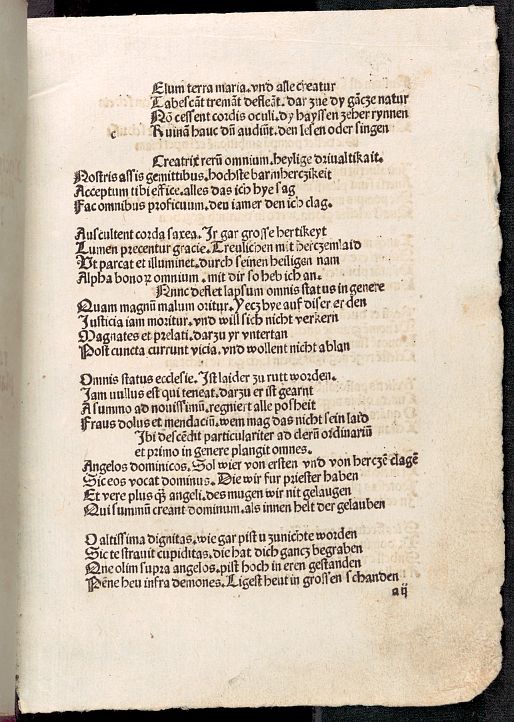 Elum terra maria. vnd alle creatur
Tabescãt tremãt defleãt. dar zue dy gãcze natur
Nõ cessent cordis oculi. dy hayssen zeher rynnen
Ruinã hanc dũ audiũt. den lesen oder singen
Creatrix rerũ omnium. heylige driualtikait.
Nostris assis gemittibus. hochste barmherczikeit
Acceptum tibi effice. alles das ich hye sag
Fac omnibus proficuum. den iamer den ich clag.
Auscultent corda saxea. Ir gar grosse hertikeyt
Lumen precentur gracie. Treulichen mit herczenlaid
Vt parcat et illuminet. durch seinen heiligen nam
Alpha bonoꝛ omnium. mit dir so heb ich an.
Nunc deflet lapsum omnis status in genere
Quam magnũ malum oritur. Yecz hye auf diser erden
Justicia iam moritur. vnd will sich nicht verkern
Magnates et prelati. dar zu yr vntertan
Post cuncta currunt vicia. vnd wollent nicht ablan
Omnis status ecclesie. Ist laider zu rutt worden.
Iam nullus est qui teneat. darzu er ist gearnt
A summo ad nouissimũ. regniert alle posheit
Fraus dolus et mendaciũ. wem mag das nicht sein laid
Ibi descẽdit particulariter ad clerũ ordinariũ
et primo in genere plangit omnes.
Angelos dominicos. Sol wier von ersten vnd von herczẽ clagẽ
Sic eos vocat dominus. Die wir fur priester haben
Et vere plus q̃ angeli. des mugen wir nit gelaugen
Qui summũ creant dominum. als innen helt der gelauben
O altissima dignitas. wie gar pist u zunichte worden
Sic te strauit cupiditas. die hat dich gancz begraben
Que olim supra angelos. pist hoch in eren gestanden
Pẽne heu infra demones. Ligest heut in grossen schanden
a ij